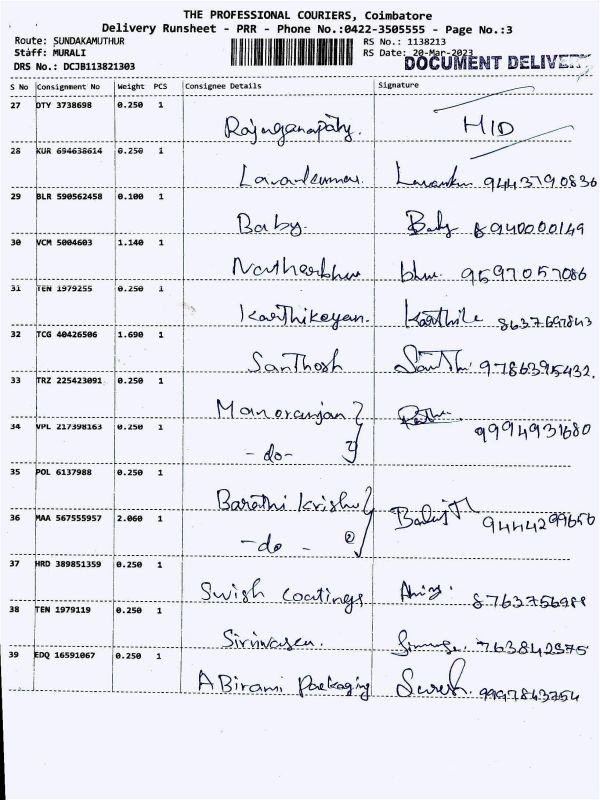 THE PROFESSIONAL COURIERS, Coimbatore
Delivery Runsheet - PRR - Phone No.:0422-3505555 - Page No.:3
Route: SUNDAKAMUTHUR RS No.: 1138213
Staff: MURALI RS Date: 20-Mar-2023
DRS No.: DCJB113821303 DOCUMENT DELIVE
S No Consignment No Weight PCS Consignee Details Signature
27 DTY 3738698 0.250 1
Rajaganapathy. HID
28 KUR 694638614 0.250 1
Lavankumar. 9443790836
29 BLR 590562458 0.100 1
Baby. Baby 8940000149
30 VCM 5004603 1.140 1
9597057086
31 TEN 1979255 0.250 1
Karthikeyan. Karthik 8637697843
32 TCG 40426506 1.690 1
Santhosh 9786395432.
33 TRZ 225423091 0.250 1
Manoranjan
34 VPL 217398163 0.250 1 9994931680
-do-
35 POL 6137988 0.250 1
Barathi Krishn
36 MAA 567555957 2.060 1 Balaji
9444299656
-do-
37 HRD 389851359 0.250 1
Swish Coatings
38 TEN 1979119 0.250 1
Srinivasan. 763842375
39 EDQ 16591067 0.250 1
ABirami Packaging Suresh. 9997843754